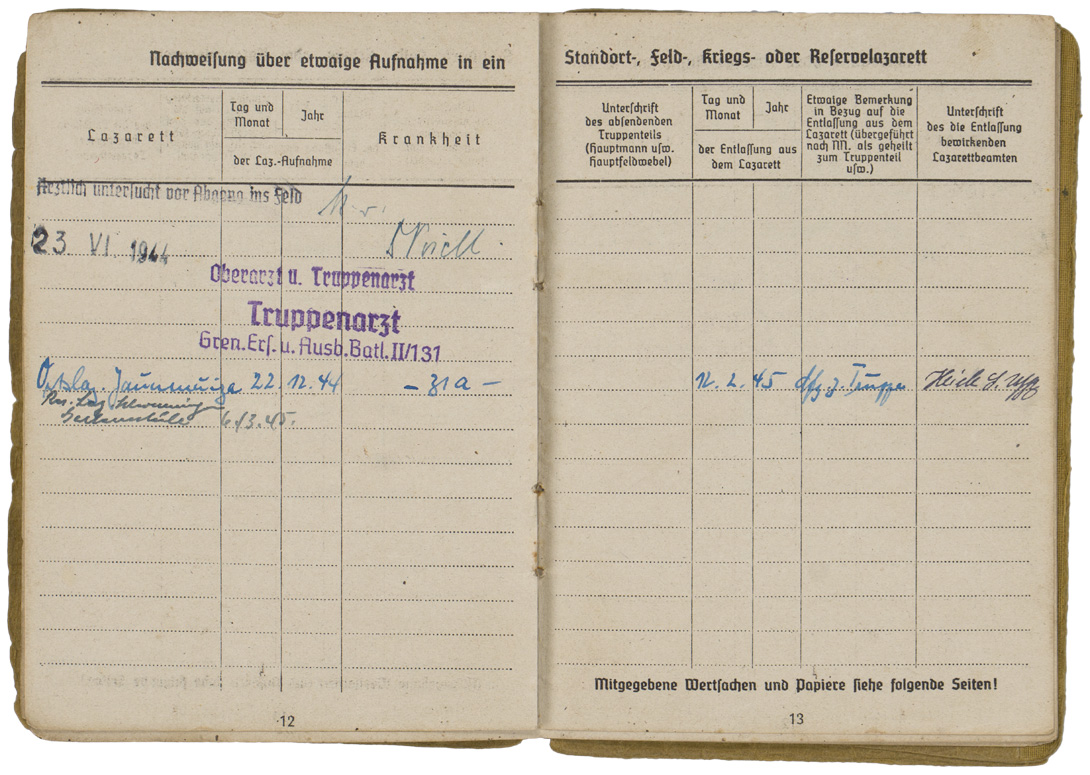 Nachweisung über etwaige Aufnahme in ein
Lazarett
Tag und
Monat
Jahr
der Laz.-Aufnahme
Krankheit
Ärztlich untersucht vor Abgang ins Feld
23 VI 1944
Oberarzt u. Truppenarzt
Truppenarzt
Gren.Ers.u.Ausb.Batl.II/131
22.12.44
- 31a -
6/3.45.
12
Standort-, Feld-, Kriegs- oder Reservelazarett
Unterschrift
des absendenden
Truppenteils
(Hauptmann usw.
Hauptfeldwebel)
Tag und
Monat
Jahr
der Entlassung aus
dem Lazarett
Etwaige Bemerkung
in Bezug auf die
Entlassung aus dem
Lazarett (übergeführt
nach N. als geheilt
zum Truppenteil
usw.)
Unterschrift
des die Entlassung
bewirkenden
Lazarettbeamten
12. 2. 45 dfg. z. Truppe
Mitgegebene Wertsachen und Papiere siehe folgende Seiten!
13